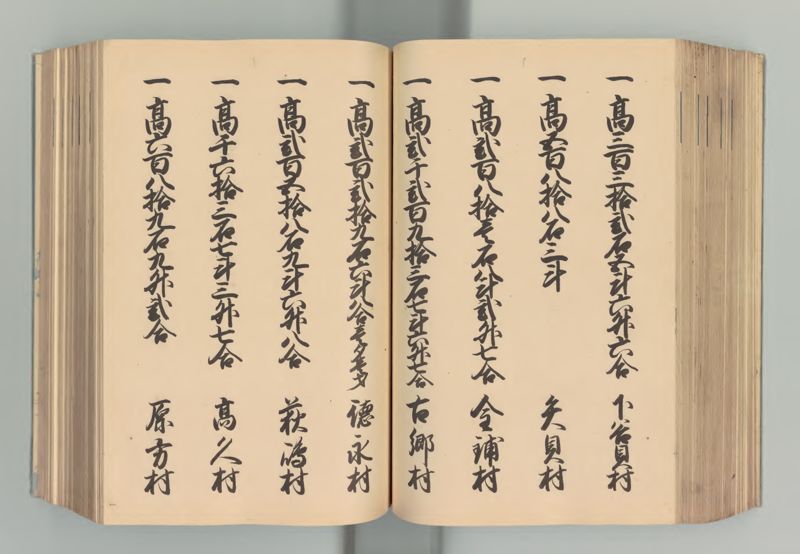 一高三百三拾弐石五斗六升六合 下谷貝村
一高五百八拾八石三斗 矢貝村
一高弐百八拾壱石八斗弐升七合 全鋪村
一高弐千弐百九拾三石七斗六升七合 古郷村
一高弐百弐拾九石六斗八合壱夕壱才 徳永村
一高弐百五拾八石九斗六升八合 萩嶋村
一高千六拾三石七斗二升七合 高久村
一高六百八拾九石九升弐合 原方村